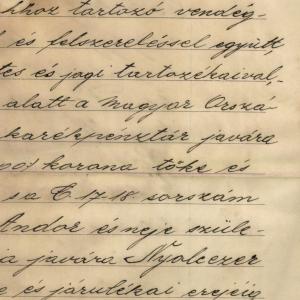 hhoz tartozó vendég-
és felszereléssel együtt,
tes és jogi tartozékaival,
alatt a Magyar Orszá-
karékpénztár javára
00) korona tőke és
s a C. 17-18. sorszám
Andor és neje szüle-
ia javára Nyolcezer
e és járulékai erejéig